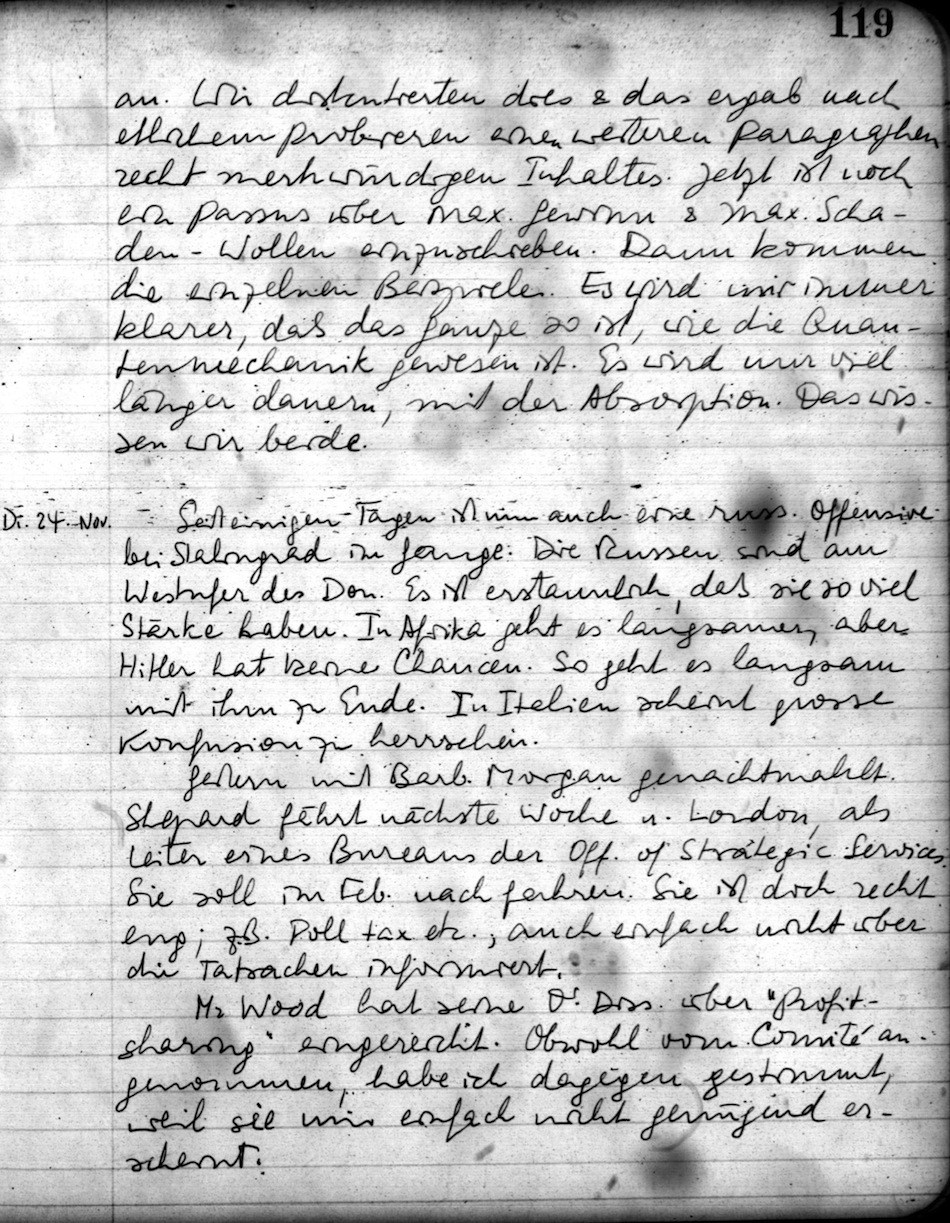 119
an. Wir diskutierten dies & das ergab nach
etlichem Probieren einen weiteren Paragraphen
recht merkwürdigen Inhaltes. Jetzt ist noch
ein Passus über Max. Gewinn & Max. Scha-
den - Wollen einzuschieben. Dann kommen
die einzelnen Beispiele. Es wird mir immer
klarer, daß das Ganze so ist, wie die Quan-
tenmechanik gewesen ist. Es wird nur viel
länger dauern, mit der Absorption. Das wis-
sen wir beide.
Di. 24. Nov. Seit einigen Tagen ist nun auch eine russ. Offensive
bei Stalingrad im Gange. Die Russen sind am
Westufer des Don. Es ist erstaunlich, daß sie so viel
Stärke haben. In Afrika geht es langsamer, aber
Hitler hat keine Chancen. So geht es langsam
mit ihm zu Ende. In Italien scheint grosse
Konfusion zu herrschen.
Gestern mit Barb. Morgan genachtmahlt.
Shepard fährt nächste Woche n. London, als
Leiter eines Bureaus der Off. of Strategic Services
Sie soll im Feb. nachfahren. Sie ist doch recht
eng; z.B. Poll tax etc., auch einfach nicht über
die Tatsachen informiert.
Mr Wood hat seine Dr. Diss. über "Profit-
sharing" eingereicht. Obwohl vom Comité an-
genommen, habe ich dagegen gestimmt,
weil sie mir einfach nicht genügend er-
scheint.